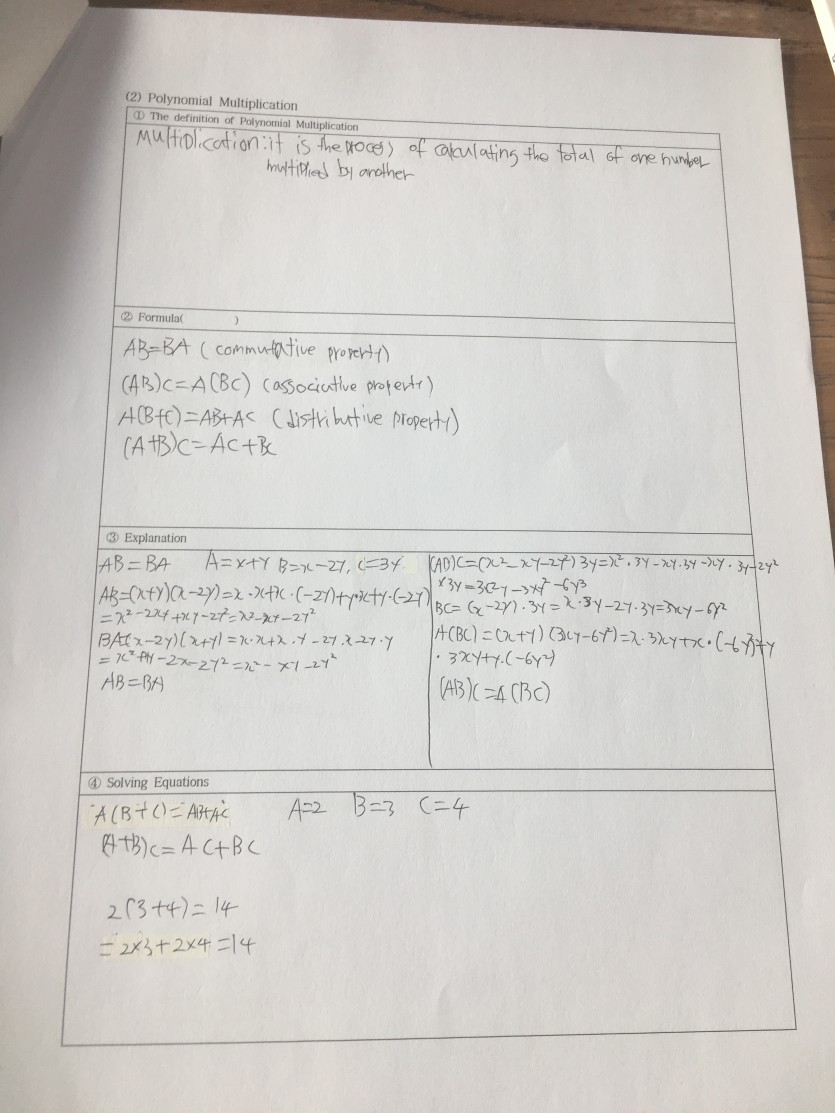 (2) Polynomial Multiplication
① The definition of Polynomial Multiplication
Multiplication: it is the process of calculating the total of one number
multiplied by another
② Formula( )
AB=BA (commutative property)
(AB)C=A(BC) (associative property)
A(B+C)=AB+AC (distributive property)
(A+B)C=AC+BC
③ Explanation
AB=BA A=x+y B=x-2y, C=3y
AB=(x+y)(x-2y)=x·x+x·(-2y)+y·x+y·(-2y)
=x²-2xy+xy-2y²=x²-xy-2y²
BA=(x-2y)(x+y)=x·x+x·y-2y·x-2y·y
=x²+xy-2x-2y²=x²-xy-2y²
AB=BA
(AB)C=(x²-xy-2y²)3y=x²·3y-xy·3y-xy·3y-2y²
×3y=3x²y-3xy²-6y³
BC=(x-2y)·3y=x·3y-2y·3y=3xy-6y²
A(BC)=(x+y)(3xy-6y²)=x·3xy+x·(-6y²)+y
·3xy+y·(-6y²)
(AB)C=A(BC)
④ Solving Equations
A(B+C)=AB+AC A=2 B=3 C=4
(A+B)C=AC+BC
2(3+4)=14
=2×3+2×4=14